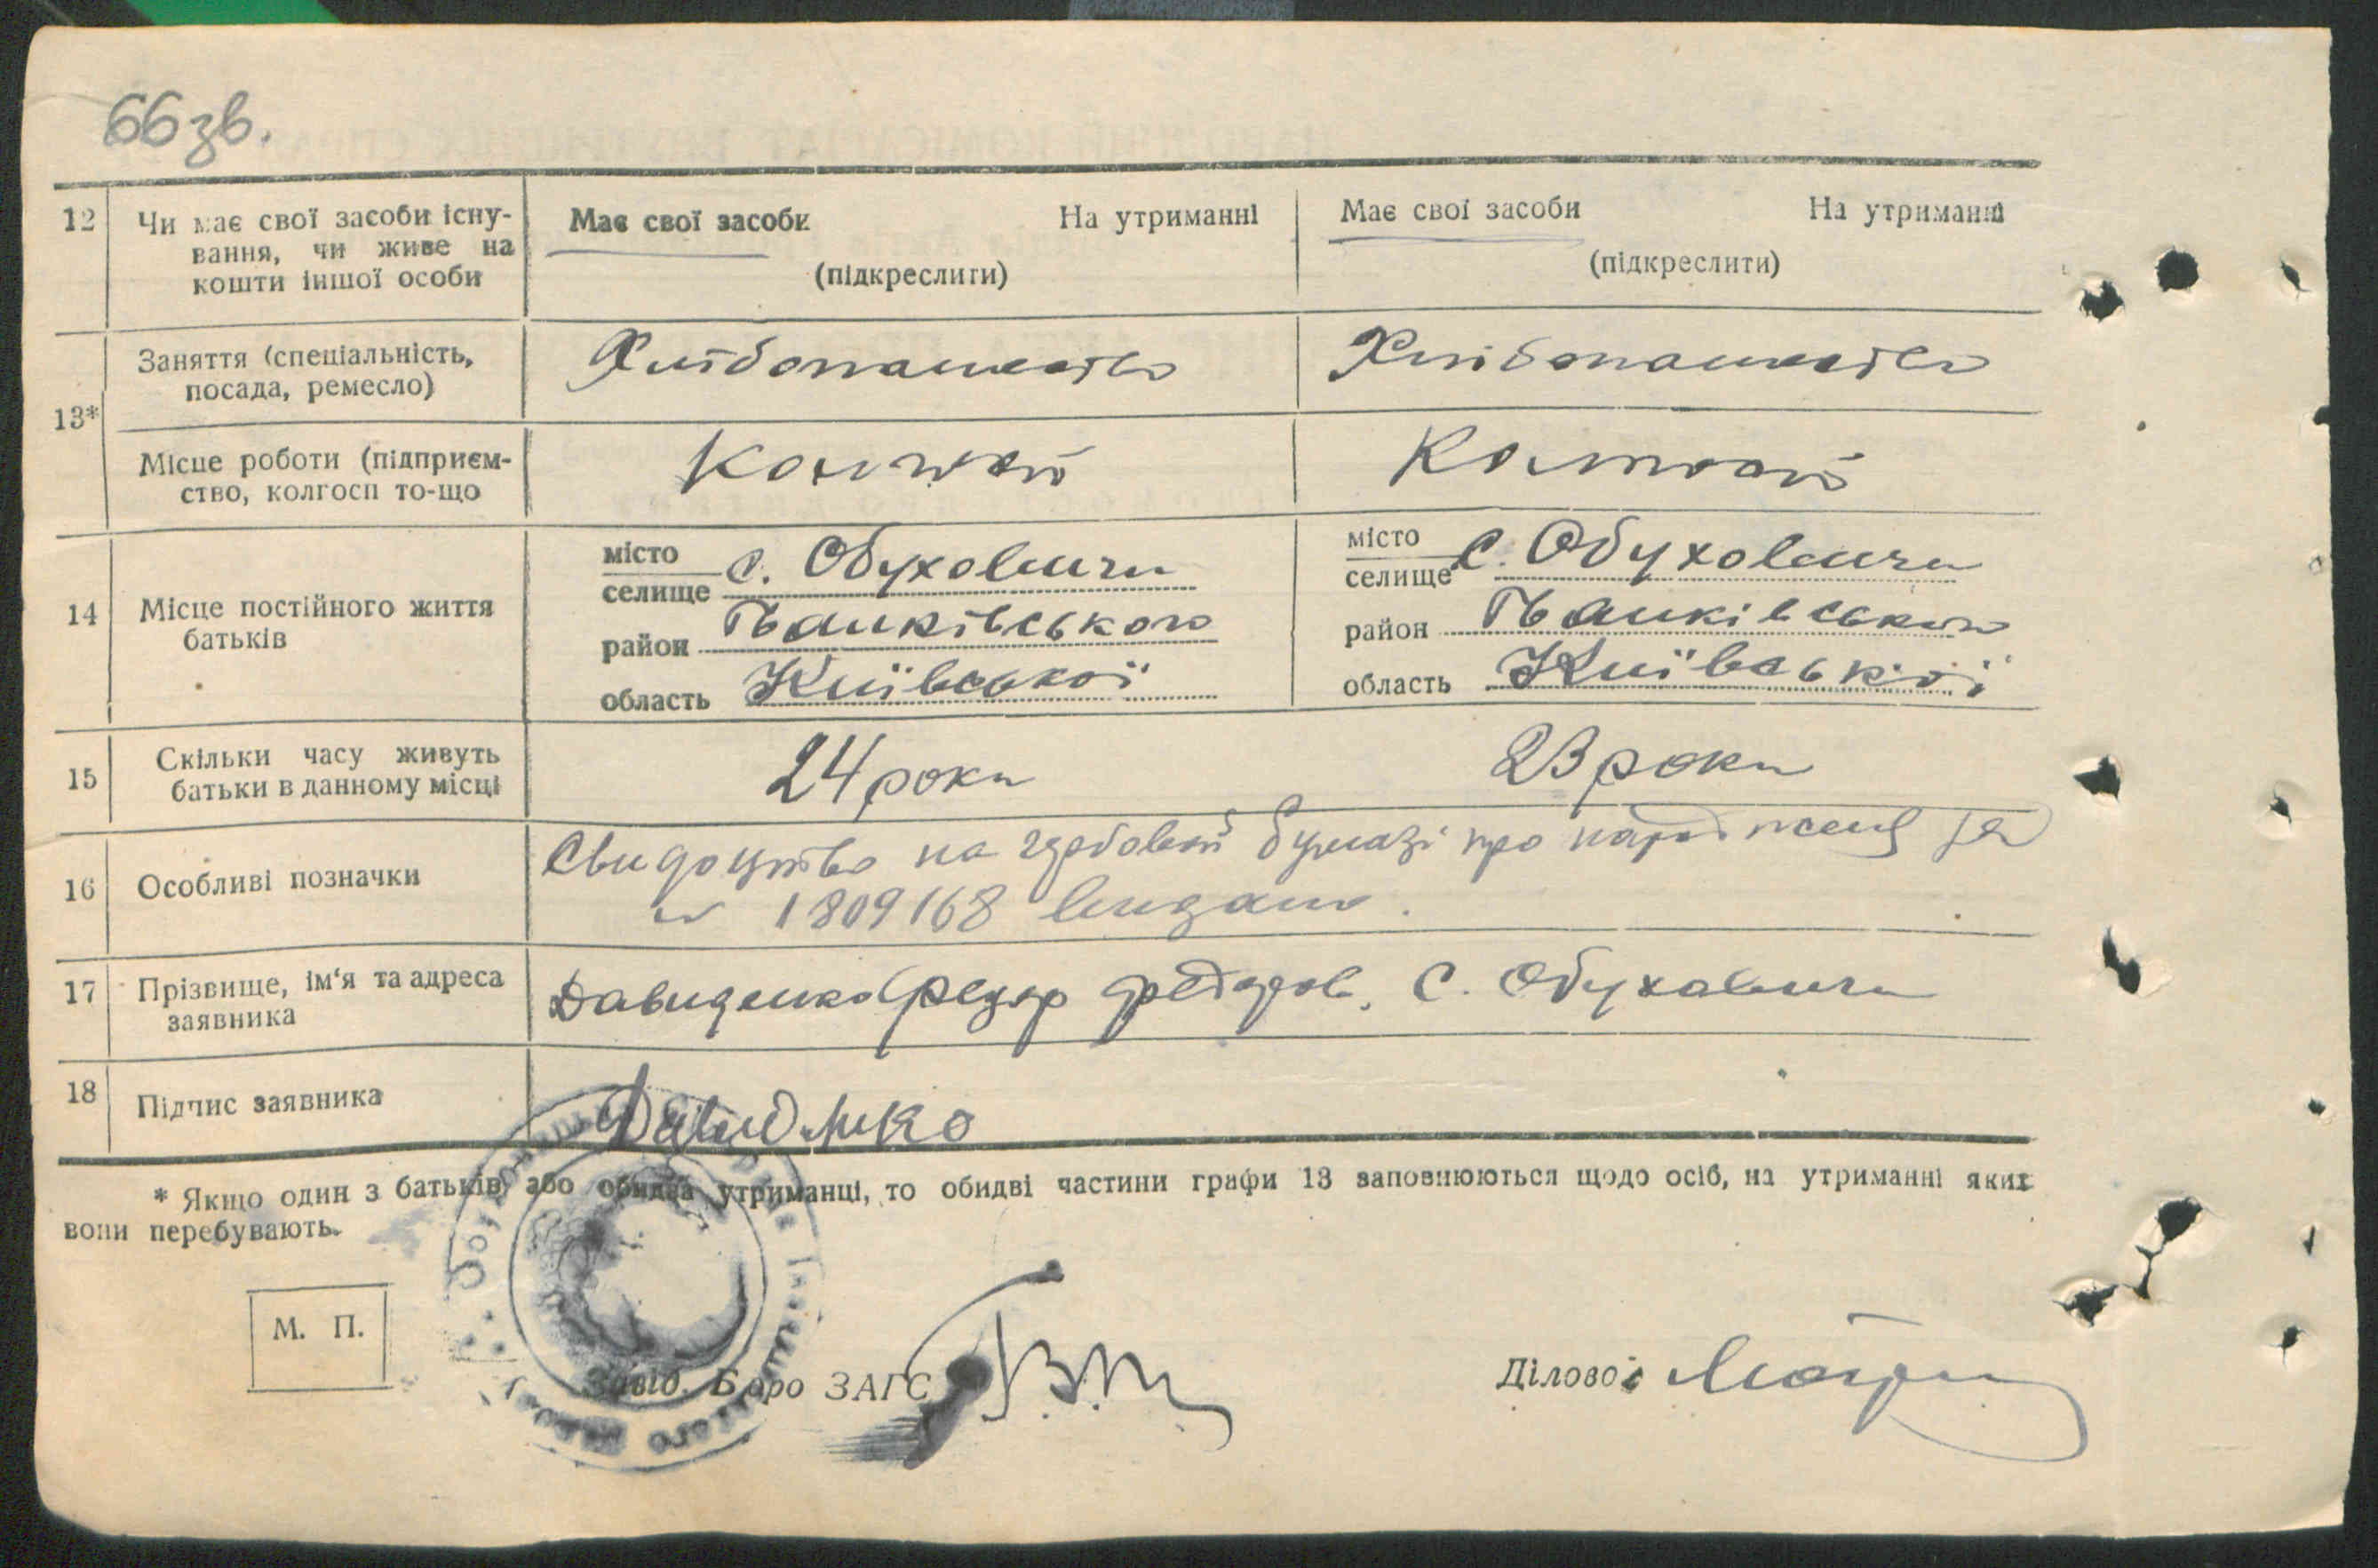 66 зв.
12 Чи має свої засоби існу- Має свої засоби На утриманні Має свої засоби На утриманні
вання, чи живе на (підкреслити) (підкреслити)
кошти іншої особи
13* Заняття (спеціальність, Хлібопашество Хлібопашество
посада, ремесло)
Місце роботи (підприєм- Колгосп Колгосп
ство, колгосп то-що
14 Місце постійного життя місто с. Обуховичи місто с. Обуховичи
батьків селище селище
район Іванківського район Іванківського
область Київської область Київської
15 Скільки часу живуть 24 роки 23 роки
батьки в данному місці
16 Особливі позначки Свидоцтво на гербовой бумазі про народженя
1809168 видано.
17 Прізвище, ім'я та адреса Давиденко Федор Федоров. С. Обуховичи
заявника
18 Підпис заявника Давиденко
* Якщо один з батьків або обидва утриманці, то обидві частини графи 13 заповнюються щодо осіб, на утриманні яких
вони перебувають.
М. П.
Завід. Бюро ЗАГС Діловод